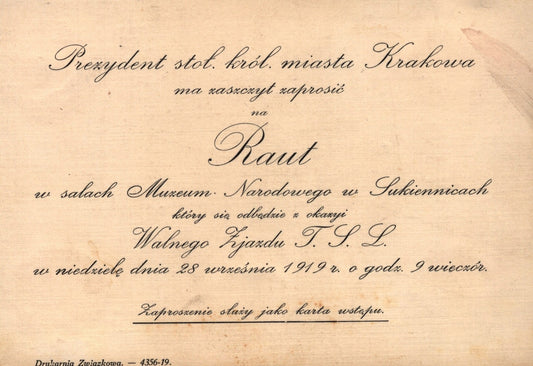 Prezydent stoł. król. miasta Krakowa
ma zaszczyt zaprosić
na
Raut
w salach Muzeum Narodowego w Sukiennicach
który się odbędzie z okazyi
Walnego Zjazdu T. S. L.
w niedzielę dnia 28 września 1919 r. o godz. 9 wieczór.
Zaproszenie służy jako karta wstępu.
Drukarnia Związkowa. — 4356-19.